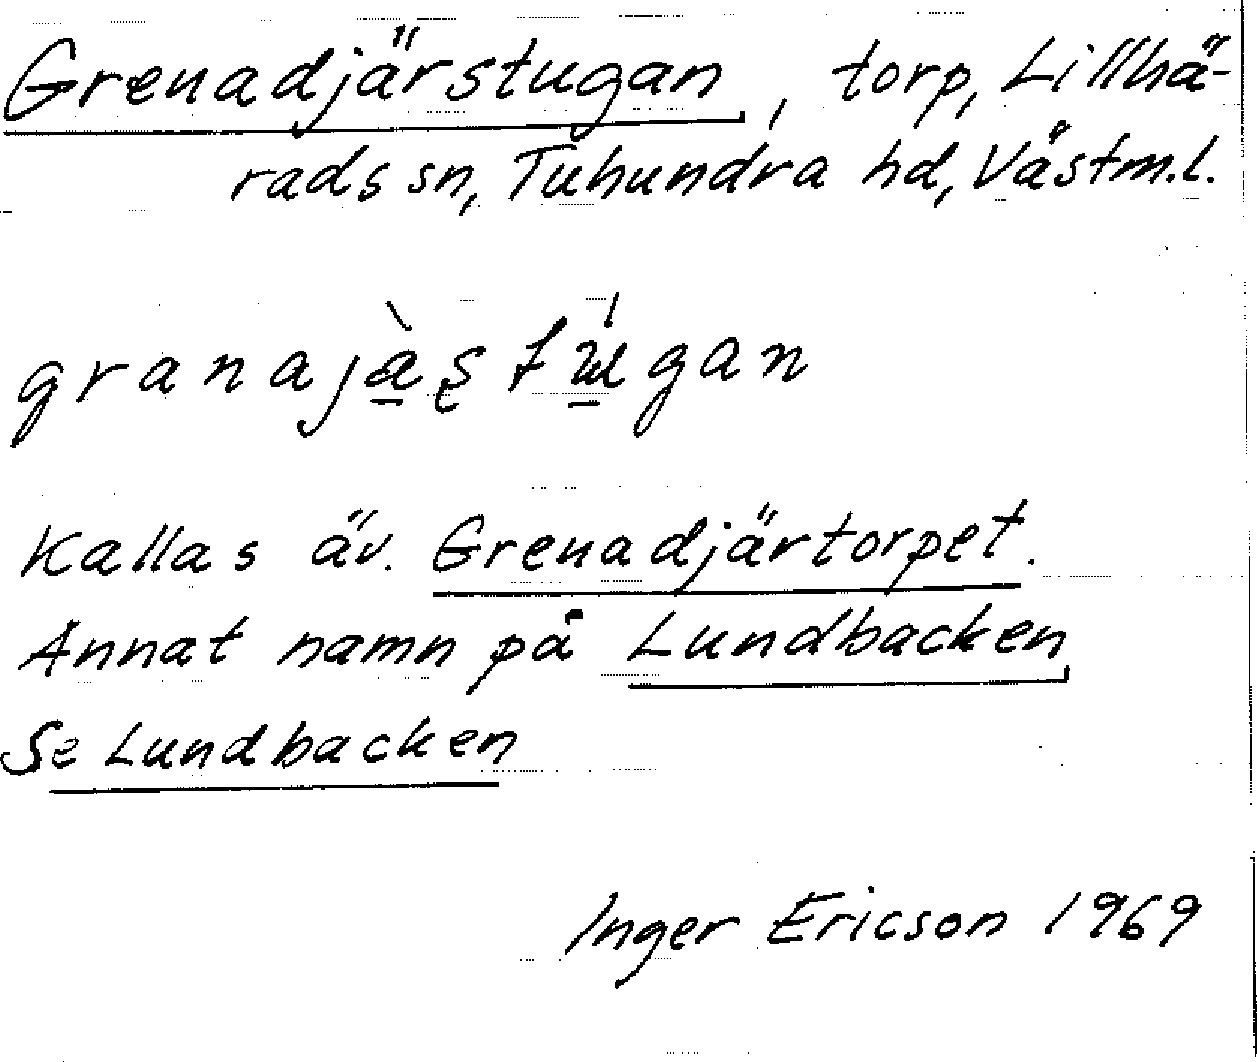 Grenadjärstugan, torp, Lillhä-
rads sn, Tuhundra hd, Västm.l.
Kallas äv. Grenadjärtorpet.
Annat namn på Lundbacken
Se Lundbacken
Inger Ericson 1969